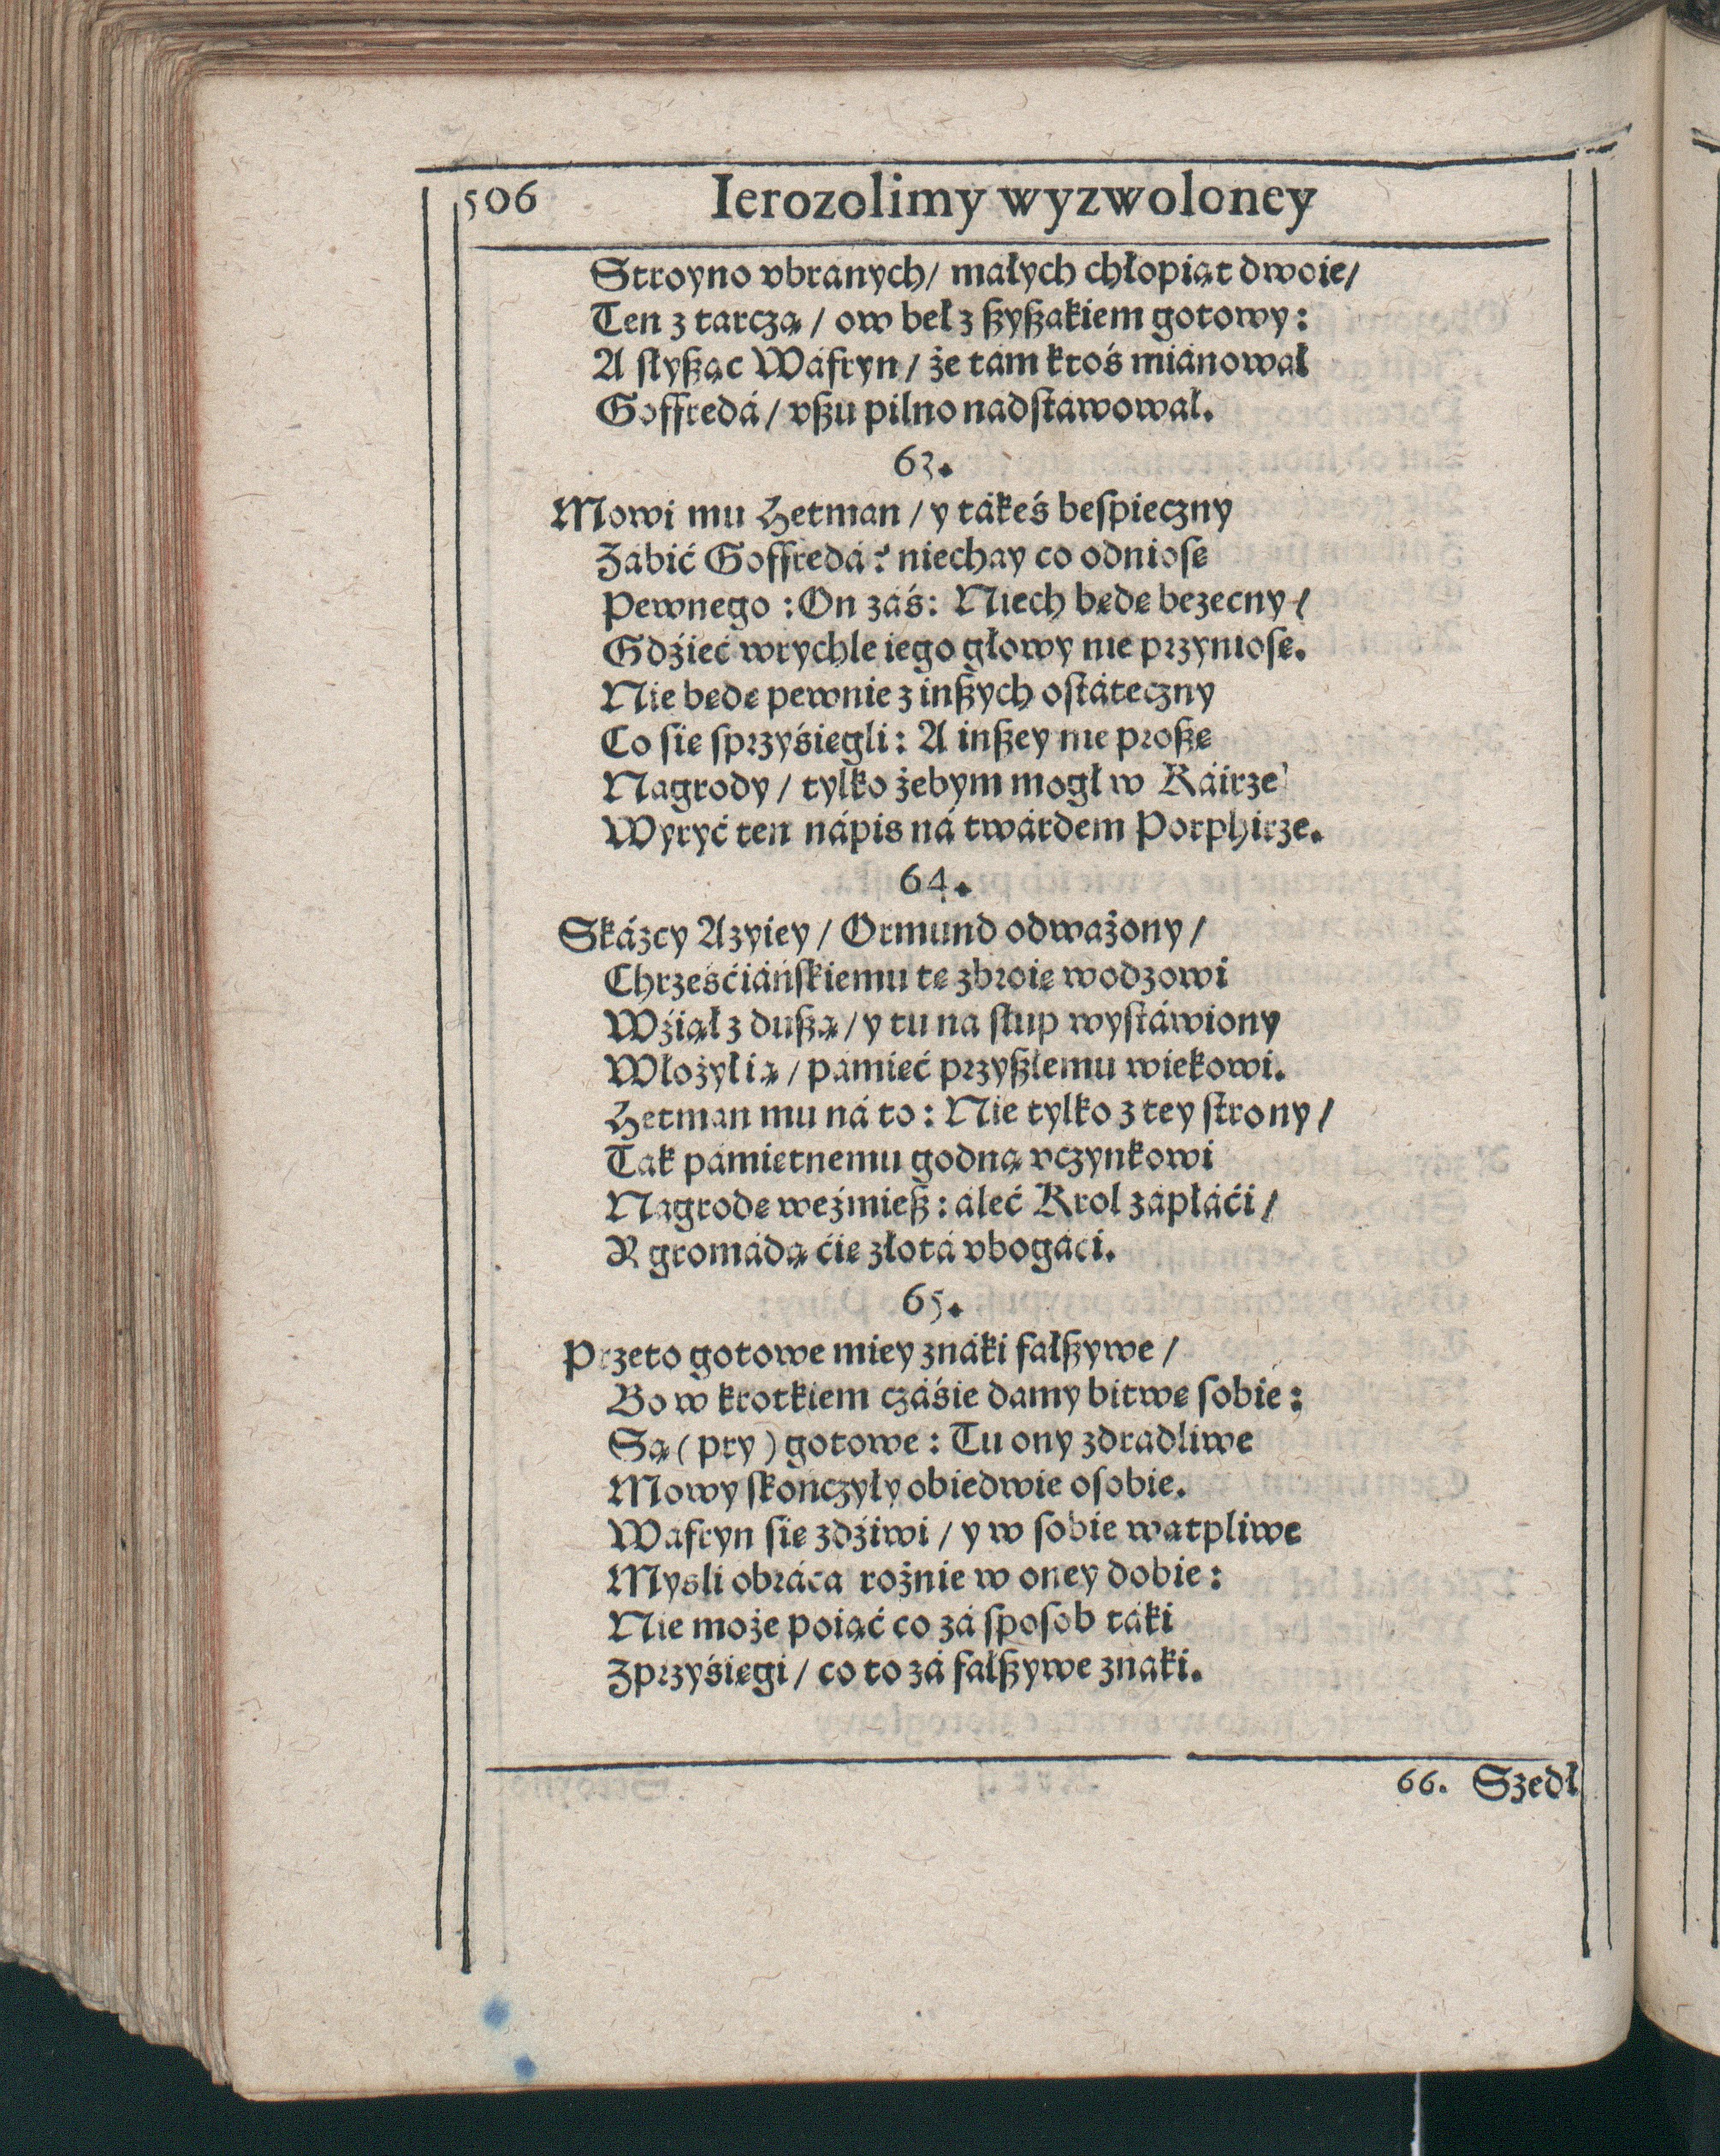 506 Ierozolimy wyzwoloney
Stroyno vbránych/ máłych chłopiąt dwoie/
Ten z tarczą/ ow beł z ßyßakiem gotowy:
A słyßąc Wáfryn/ że tám ktoś miánował
Goffredá/ vßu pilno nadstáwował.
63.
Mowi mu Hetman/ y tákeś bespieczny
Zábić Goffredá? niechay co odniosę
Pewnego: On záś: Niech będę bezecny/
Gdźieć wrychle iego głowy nie przyniosę.
Nie będę pewnie z inßych ostáteczny
Co się sprzyśięgli: A inßey nie proßę
Nagrody/ tylko żebym mogł w Káirze
Wyryć ten nápis ná twárdem Porphirze.
64.
Skázcy Azyiey/ Ormund odważony/
Chrześćiáńskiemu tę zbroię wodzowi
Wźiął z dußą/ y tu na słup wystáwiony
Włożył ią/ pámięć przyßłemu wiekowi.
Hetman mu ná to: Nie tylko z tey strony/
Tak pámiętnemu godną vczynkowi
Nagrodę weźmieß: áleć Krol zápłáći/
Y gromádą ćię złotá vbogáci.
65.
Przeto gotowe miey znáki fałßywe/
Bo w krotkiem czáśie damy bitwę sobie:
Są (pry) gotowe: Tu ony zdradliwe
Mowy skończyły obiedwie osobie.
Wafryn się zdźiwi/ y w sobie wątpliwe
Mysli obráca rożnie w oney dobie:
Nie może poiąć co zá sposob táki
Zprzyśięgi/ co to zá fałßywe znaki.
66. Szedł